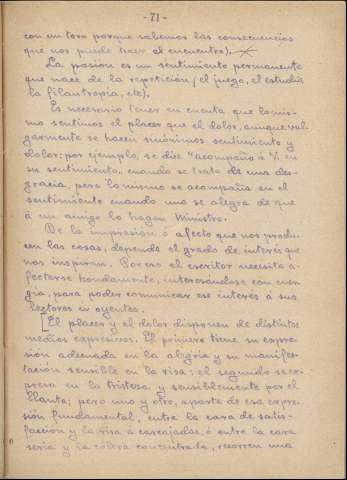 - 71 -
con un toro porque sabemos las consecuencias
que nos puede traer el encuentro).
La pasión es un sentimiento permanente
que nace de la repetición (el juego, el estudio
la filantropía, etc).
Es necesario tener en cuenta que lo mis-
mo sentimos el placer que el dolor, aunque vul
garmente se hacen sinónimos sentimiento y
dolor; por ejemplo, se dice "acompaño á V. en
su sentimiento, cuando se trata de una des-
gracia, pero lo mismo se acompaña en el
sentimiento cuando uno se alegra de que
á un amigo lo hagan Ministro.
De la impresión ó afecto que nos produ
cen las cosas, depende el grado de interés que
nos inspiran. Por eso el escritor necesita a-
fectarse hondamente, interesándose con ener
gía, para poder comunicar ese interés á sus
lectores ú oyentes.
[El placer y el dolor disponen de distintos
medios expresivos. El primero tiene su expre-
sión adecuada en la alegría y su manifes-
tación sensible en la risa; el segundo se ex-
presa en la tristeza y sensiblemente por el
llanto; pero uno y otro, aparte de esa expre-
sión fundamental, entre la cara de satis-
facción y la risa á carcajadas, ó entre la cara
seria y la cólera concentrada, recorren una